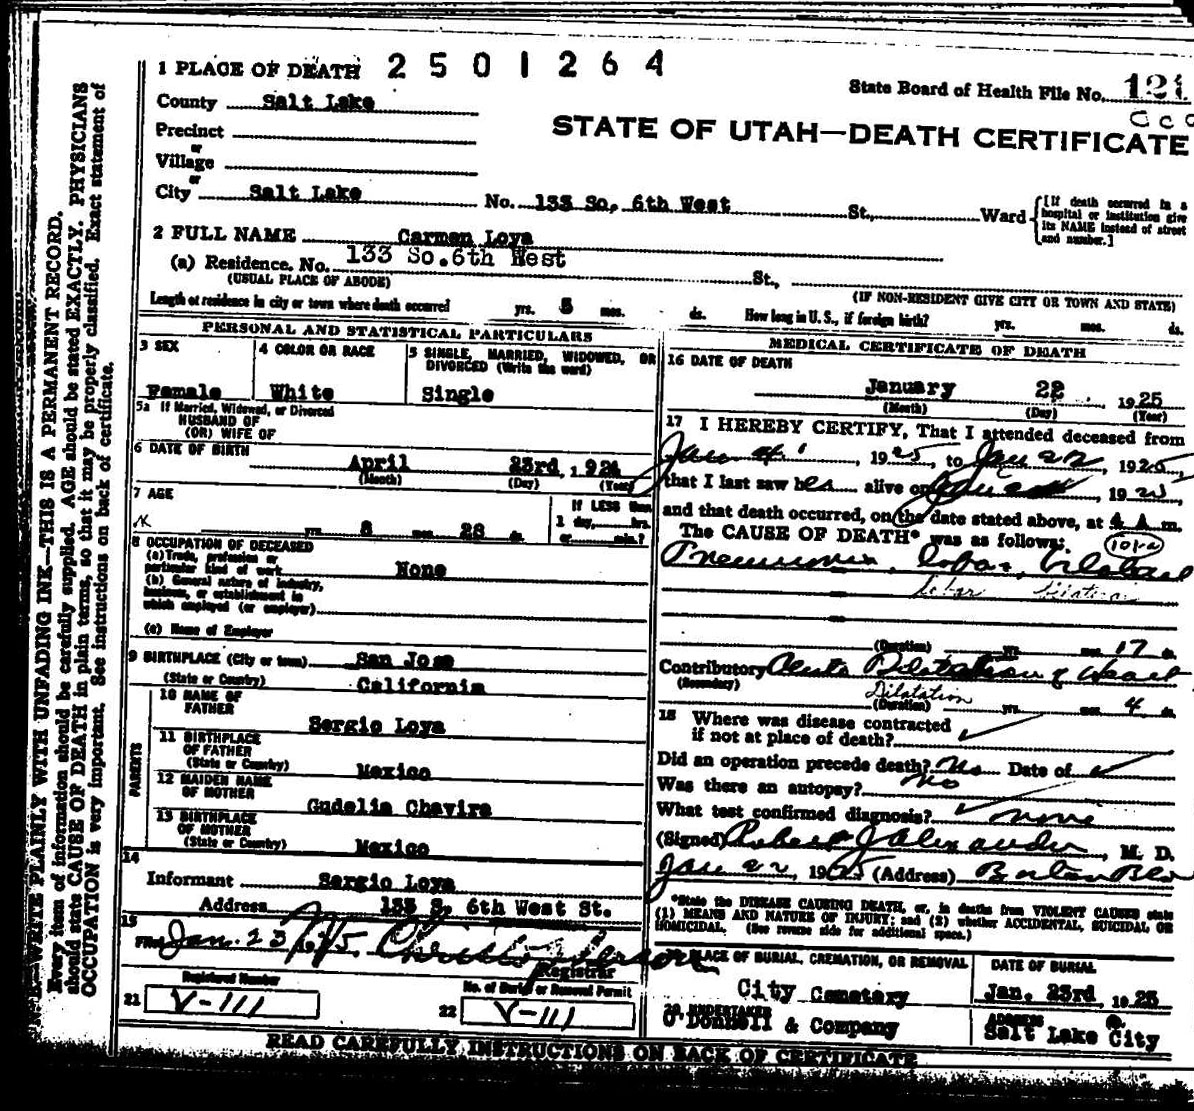 1 PLACE OF DEATH 2 5 0 1 2 6 4
State Board of Health File No. 121
County Salt Lake
STATE OF UTAH—DEATH CERTIFICATE
Precinct
or
Village
or
City Salt Lake No. 133 So. 6th West St., Ward [If death occurred in a hospital or institution give its NAME instead of street and number.]
2 FULL NAME Carmen Loya
(a) Residence. No. 133 So.6th West St.,
(USUAL PLACE OF ABODE) (IF NON-RESIDENT GIVE CITY OR TOWN AND STATE)
Length of residence in city or town where death occurred yrs. 5 mos. ds. How long in U.S., if foreign birth? yrs. mos. ds.
PERSONAL AND STATISTICAL PARTICULARS
3 SEX
Female
4 COLOR OR RACE
White
5 SINGLE, MARRIED, WIDOWED, OR DIVORCED (Write the word)
Single
5a If Married, Widowed, or Divorced
HUSBAND OF
(OR) WIFE OF
6 DATE OF BIRTH
April 23rd, 1924
(Month) (Day) (Year)
7 AGE
yrs. 8 mos. 28 ds.
If LESS than
1 day, hrs.
or min.?
8 OCCUPATION OF DECEASED
(a) Trade, profession or
particular kind of work None
(b) General nature of industry,
business, or establishment in
which employed (or employer)
(c) Name of Employer
9 BIRTHPLACE (City or town) San Jose
(State or Country) California
PARENTS
10 NAME OF
FATHER
Sergio Loya
11 BIRTHPLACE
OF FATHER
(State or Country) Mexico
12 MAIDEN NAME
OF MOTHER
Gudelia Chavira
13 BIRTHPLACE
OF MOTHER
(State or Country) Mexico
14
Informant Sergio Loya
Address 133 S. 6th West St.
15
Filed Jan. 23 1925.
Registrar
Registered Number
21 V-111
No. of Burial or Removal Permit
22 V-111
MEDICAL CERTIFICATE OF DEATH
16 DATE OF DEATH
January 22 1925
(Month) (Day) (Year)
17 I HEREBY CERTIFY, That I attended deceased from
Jan 4, 1925, to Jan 22, 1925,
that I last saw her alive on 1925,
and that death occurred, on the date stated above, at 4 A m.
The CAUSE OF DEATH* was as follows: 101-a
Pneumonia, lobar, bilateral
Lobar bilateral
(Duration) yrs. mos. 17 ds.
Contributory Acute Dilatation of Heart
(Secondary) Dilatation
(Duration) yrs. mos. 4 ds.
18 Where was disease contracted
if not at place of death?
Did an operation precede death? No Date of
Was there an autopsy? No
What test confirmed diagnosis? none
(Signed) Robert J Alexander, M. D.
Jan 22, 1925 (Address) Boston Blo
*State the DISEASE CAUSING DEATH, or, in deaths from VIOLENT CAUSES state
(1) MEANS AND NATURE OF INJURY; and (2) whether ACCIDENTAL, SUICIDAL OR
HOMICIDAL. (See reverse side for additional space.)
PLACE OF BURIAL, CREMATION, OR REMOVAL
City Cemetery
DATE OF BURIAL
Jan. 23rd, 1925
20 UNDERTAKER
O'Donnell & Company
ADDRESS
Salt Lake City
READ CAREFULLY INSTRUCTIONS ON BACK OF CERTIFICATE
WRITE PLAINLY WITH UNFADING INK—THIS IS A PERMANENT RECORD.
Every item of information should be carefully supplied. AGE should be stated EXACTLY. PHYSICIANS
should state CAUSE OF DEATH in plain terms, so that it may be properly classified. Exact statement of
OCCUPATION is very important. See instructions on back of certificate.